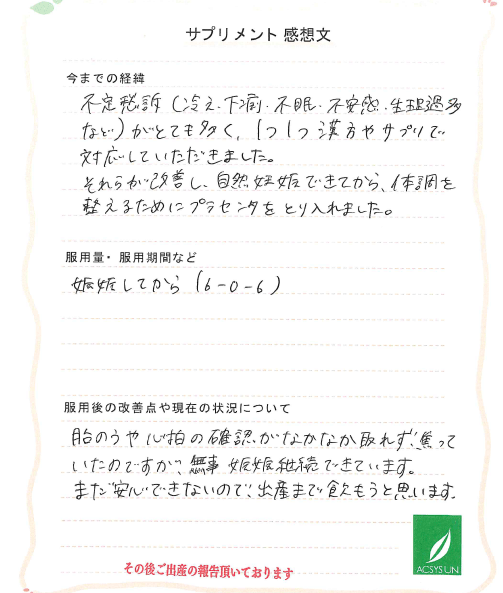 サプリメント 感想文
今までの経緯
不定愁訴（冷え・下痢・不眠・不安感・生理過多
など）がとても多く、1つ1つ漢方やサプリで
対応していただきました。
それらが改善し、自然妊娠できてから、体調を
整えるためにプラセンタをとり入れました。
服用量・服用期間など
妊娠してから（6－0－6）
服用後の改善点や現在の状況について
胎のうや心拍の確認がなかなか取れず、焦って
いたのですが、無事妊娠継続できています。
まだ安心できないので、出産まで飲もうと思います。
その後ご出産の報告頂いております
ACSYSUN